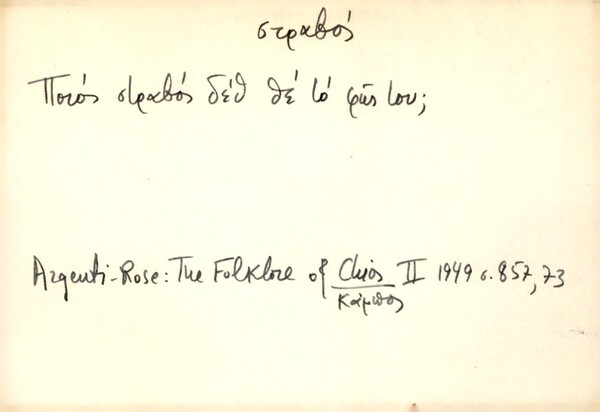 στραβός
Ποιός στραβός δέθ θέ τό φῶς του;
Argenti-Rose: The Folklore of Chios II 1949 σ. 857, 73
Κάμπος